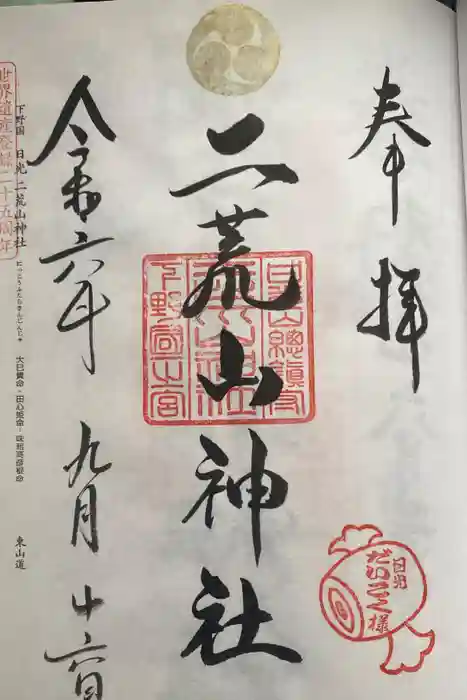 奉拝
二荒山神社
令和六年 九月 十六日
世界遺産登録二十五周年
下野国 日光二荒山神社
にっこうふたらさんじんじゃ
大己貴命・田心姫命・味耜高彦根命
東山道
下野国一宮
日光
だいこく様